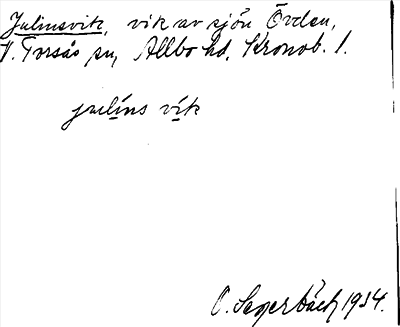 Julinsvik, vik av sjön Övden,
V. Torsås sn, Allbo hd, Kronob. l.
julins vik
O. Sagerbäck 1934.